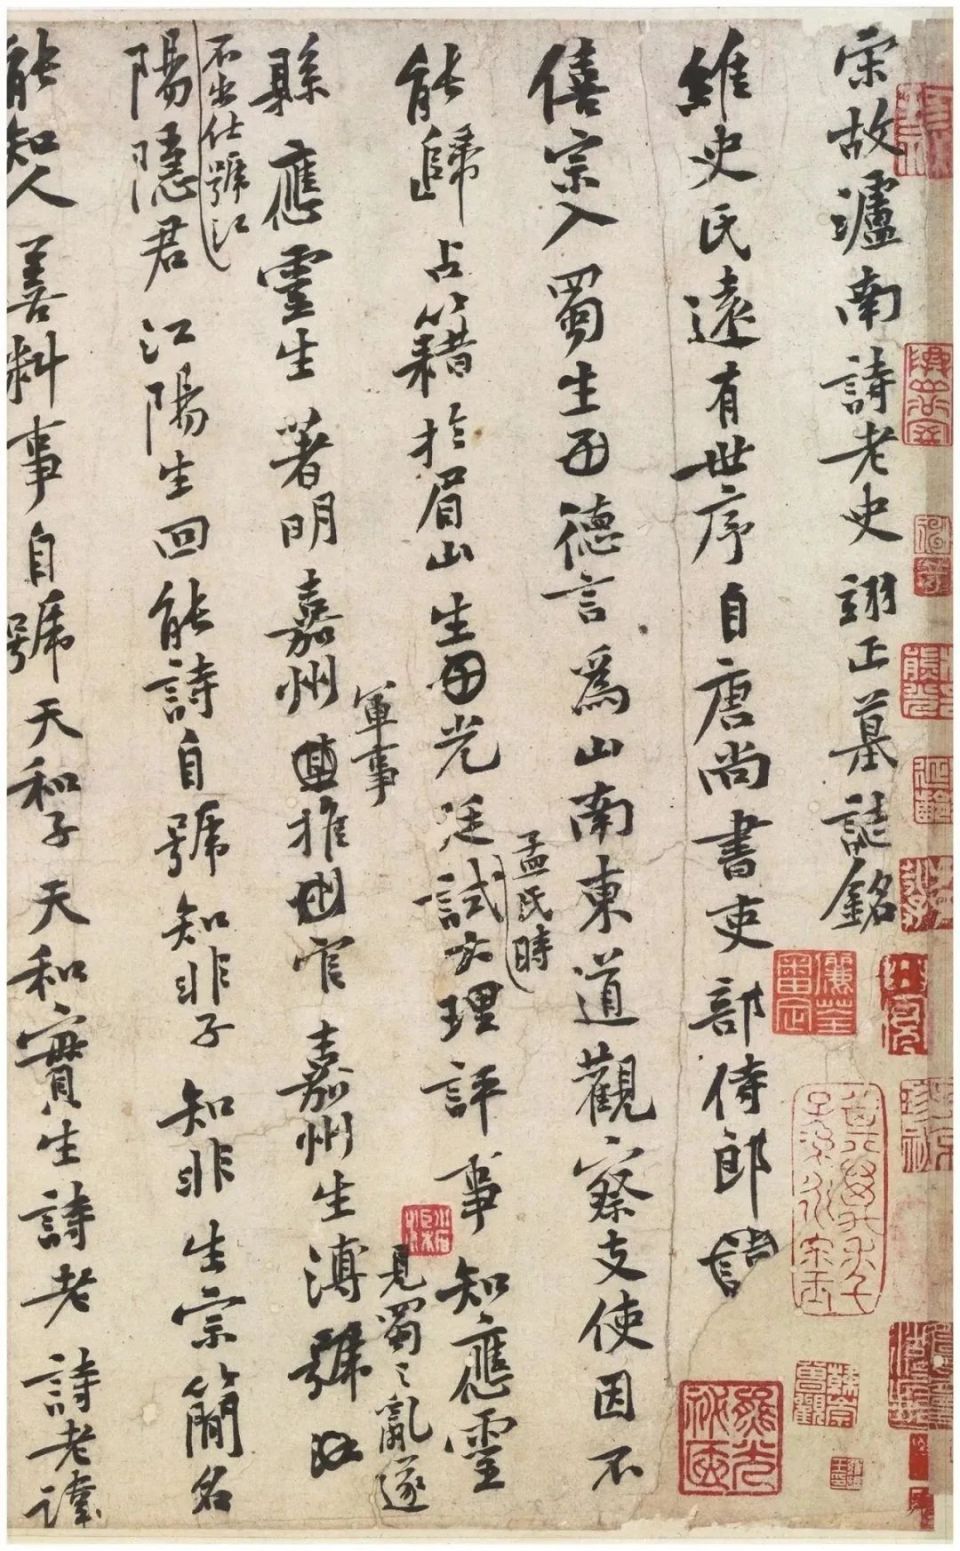 宋故瀘南詩老史翊正墓誌銘
維史氏遠有世序自唐尚書吏部侍郎
僖宗入蜀生德言為山南東道觀察支使因不
能歸占籍於眉山生光廷試大理評事知應靈
孟氏時
縣應靈生著明嘉州推官嘉州生溥號
軍事
見蜀之亂遂
不出仕號江
陽隱君江陽生回能詩自號知非子知非生宗簡名
能知人善料事自號天和子天和實生詩老詩老諱